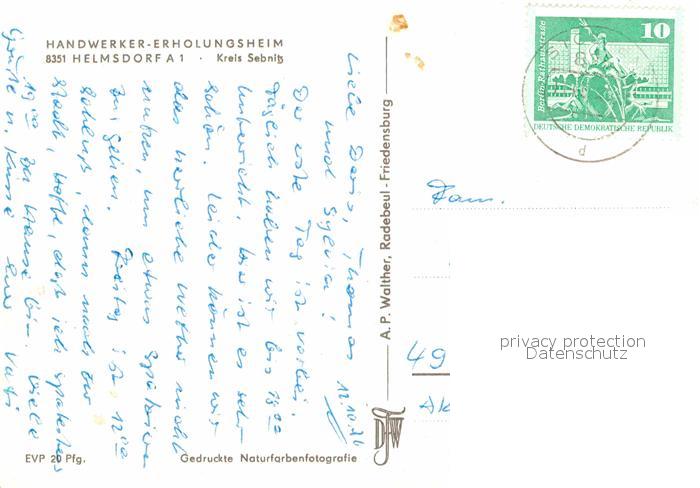 HANDWERKER-ERHOLUNGSHEIM
8351 HELMSDORF A 1 · Kreis Sebnitz
Liebe Doris, Thomas 12.10.76
und Sylvia!
Der erste Tag ist vorbei.
Täglich haben wir bis 18⁰⁰
Unterricht. Hier ist es sehr
schön. Leider können wir
das herrliche Wetter nicht
nutzen, um etwas spazieren
zu gehen. Freitag ist 12⁰⁰
Schluß, dann nach der
Stadt, hoffe, daß ich spätestens
19⁰⁰ zu Hause bin. Viele
Grüße u. Küsse Euer Vati
EVP 20 Pfg.
Gedruckte Naturfarbenfotografie
A. P. Walther, Radebeul - Friedensburg
Berlin-Rathausstraße
10
DEUTSCHE DEMOKRATISCHE REPUBLIK
d
Fam.
49
privacy protection
Datenschutz